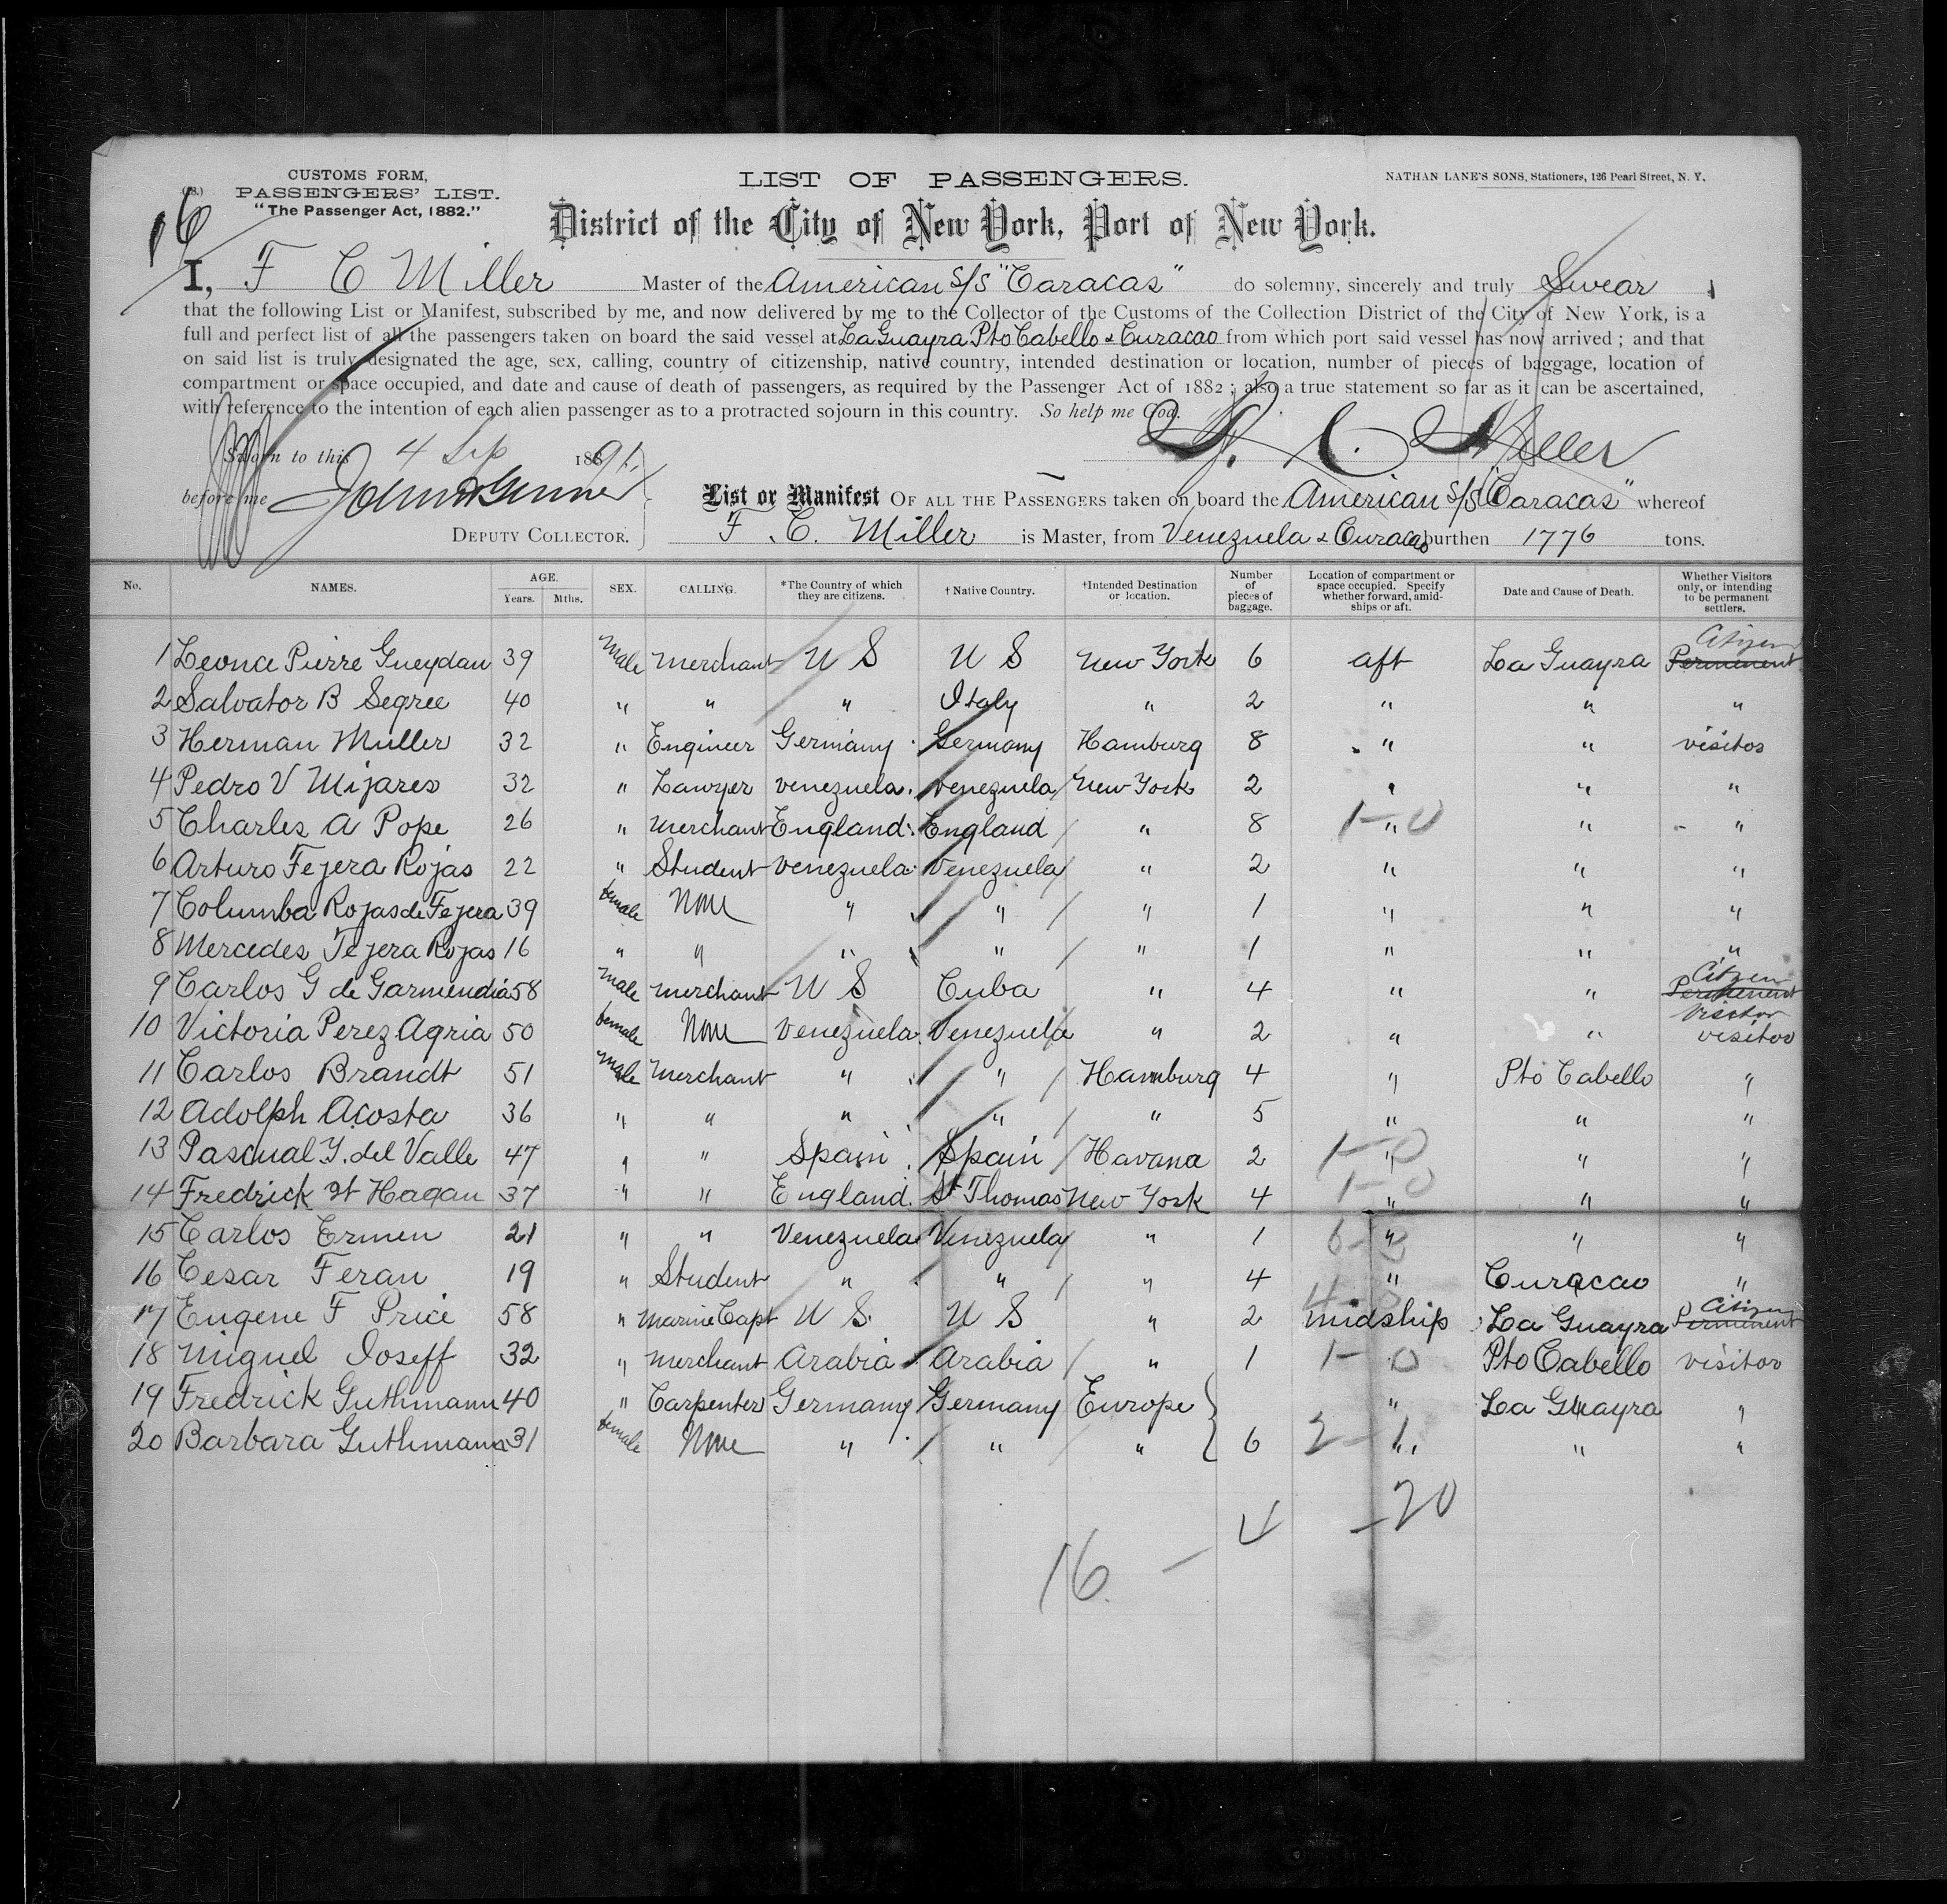 CUSTOMS FORM,
PASSENGERS' LIST.
"The Passenger Act, 1882."
LIST OF PASSENGERS.
NATHAN LANE'S SONS, Stationers, 126 Pearl Street, N. Y.
16
District of the City of New York, Port of New York.
I, F C Miller Master of the American S/S "Caracas" do solemny, sincerely and truly Swear
that the following List or Manifest, subscribed by me, and now delivered by me to the Collector of the Customs of the Collection District of the City of New York, is a
full and perfect list of all the passengers taken on board the said vessel at La Guayra Pto Cabello & Curacao from which port said vessel has now arrived ; and that
on said list is truly designated the age, sex, calling, country of citizenship, native country, intended destination or location, number of pieces of baggage, location of
compartment or space occupied, and date and cause of death of passengers, as required by the Passenger Act of 1882 ; also a true statement so far as it can be ascertained,
with reference to the intention of each alien passenger as to a protracted sojourn in this country. So help me God.
F. C. Miller
Sworn to this 4 Sep 1891.
before me
DEPUTY COLLECTOR.
List or Manifest OF ALL THE PASSENGERS taken on board the American S/S "Caracas" whereof
F. C. Miller is Master, from Venezuela & Curacao burthen 1776 tons.
No. NAMES. AGE. Years. Mths. SEX. CALLING. *The Country of which they are citizens. †Native Country. †Intended Destination or location. Number of pieces of baggage. Location of compartment or space occupied. Specify whether forward, amidships or aft. Date and Cause of Death. Whether Visitors only, or intending to be permanent settlers.
1 Leonce Pierre Gueydan 39 Male Merchant U S U S New York 6 aft La Guayra Permenent Citizen
2 Salvator B Segree 40 " " " Italy " 2 " " "
3 Herman Muller 32 " Engineer Germany Germany Hamburg 8 " " visitor
4 Pedro V Mijares 32 " Lawyer Venezuela Venezuela New York 2 " " "
5 Charles A Pope 26 " Merchant England England " 8 " 1-0 " "
6 Arturo Tejera Rojas 22 " Student Venezuela Venezuela " 2 " " "
7 Columba Rojas de Tejera 39 female None " " " 1 " " "
8 Mercedes Tejera Rojas 16 " " " " " 1 " " "
9 Carlos G de Garmendia 58 Male Merchant U S Cuba " 4 " " Permenent Citizen
visitor
10 Victoria Perez Agria 50 female None Venezuela Venezuela " 2 " " visitor
11 Carlos Brandt 51 Male Merchant " " Hamburg 4 " Pto Cabello "
12 Adolph Acosta 36 " " " " " 5 " " "
13 Pascual Y. del Valle 47 " " Spain Spain Havana 2 " 1-0 " "
14 Fredrick St Hagan 37 " " England St Thomas New York 4 " 1-0 " "
15 Carlos Ermen 21 " " Venezuela Venezuela " 1 " " "
16 Cesar Feran 19 " Student " " " 4 " Curacao "
17 Eugene F Price 58 " Marine Capt U S U S " 2 midship La Guayra Permenent Citizen
18 Miguel Joseff 32 " Merchant Arabia Arabia " 1 1-0 Pto Cabello visitor
19 Fredrick Guthmann 40 " Carpenter Germany Germany Europe " La Guayra "
20 Barbara Guthmann 31 female None " " " 6 2-1 " " "
16 - 4 - 20